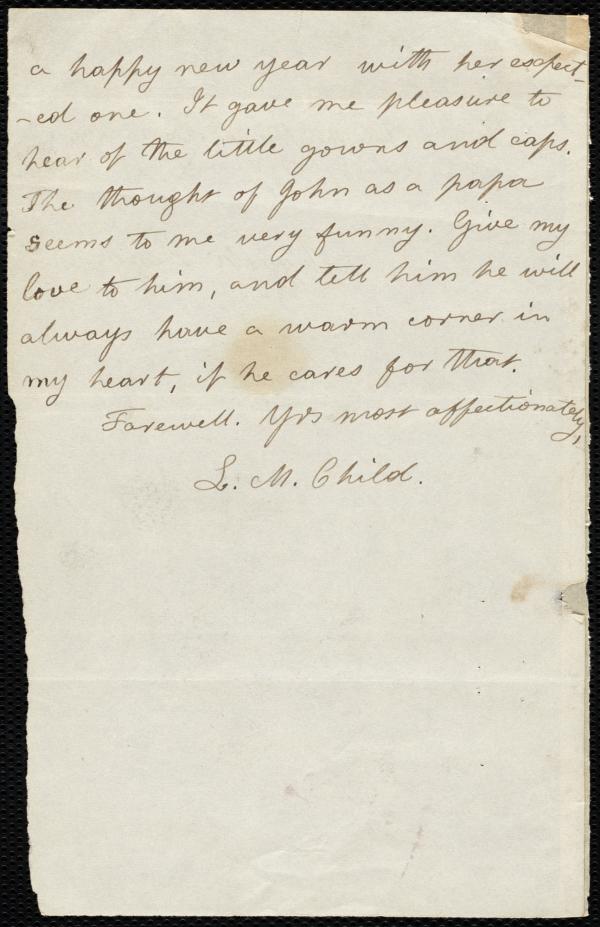 a happy new year with her expect-
-ed one. It gave me pleasure to
hear of the little gowns and caps.
The thought of John as a papa
seems to me very funny. Give my
love to him, and tell him he will
always have a warm corner in
my heart, if he cares for that.
Farewell. Yrs most affectionately,
L. M. Child.